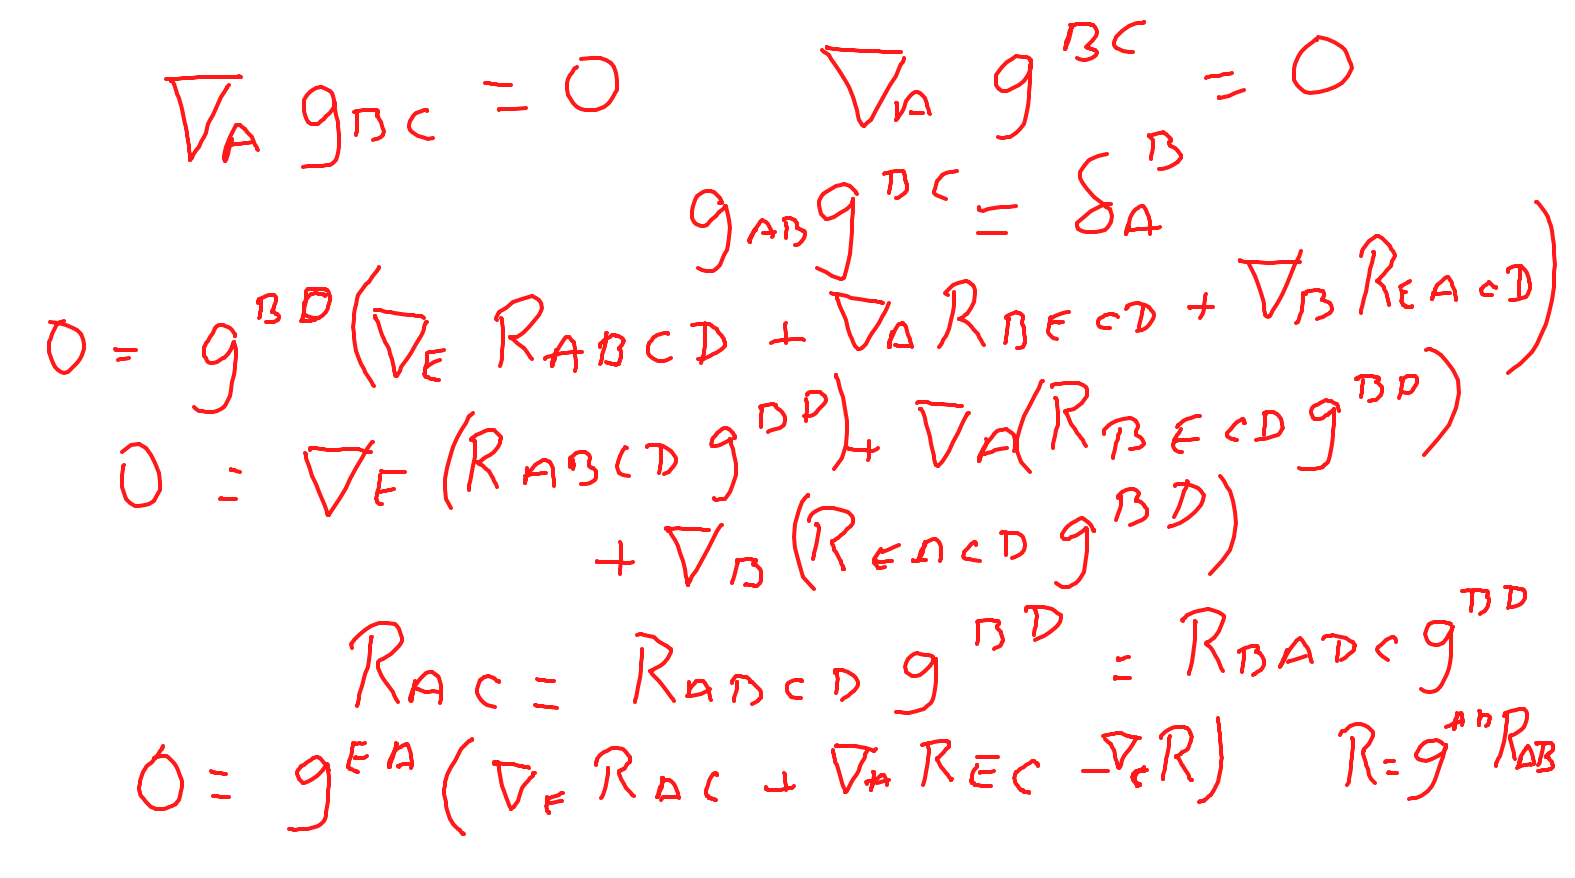 ∇_A g_{BC} = 0    ∇_A g^{BC} = 0
g_{AB} g^{BC} = δ_A^B
0 = g^{BD} (∇_E R_{ABCD} + ∇_A R_{BECD} + ∇_B R_{EACD})
0 = ∇_E (R_{ABCD} g^{BD}) + ∇_A (R_{BECD} g^{BD})
+ ∇_B (R_{EACD} g^{BD})
R_{AC} = R_{ABCD} g^{BD} = R_{BADC} g^{BD}
0 = g^{EA} (∇_E R_{AC} + ∇_A R_{EC} - ∇_C R)    R = g^{AB} R_{AB}